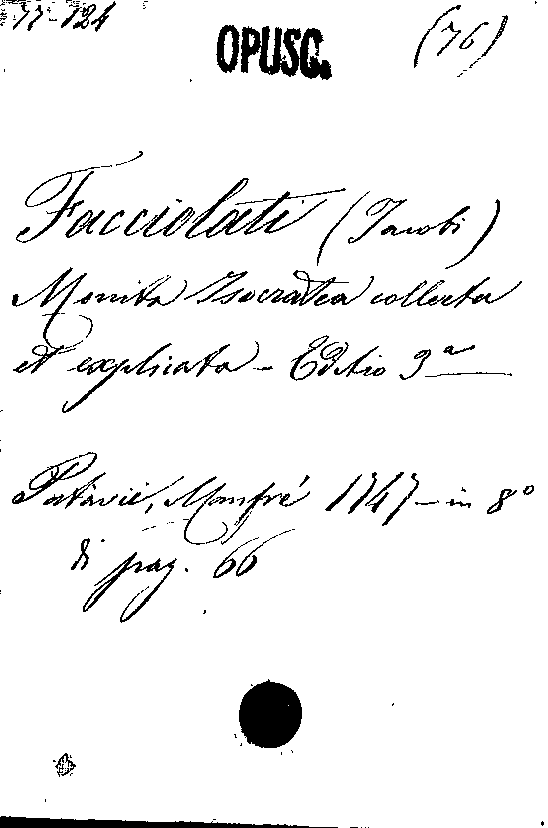 77-124
OPUSC.
(76)
Facciolati (Jacobi)
Monita Isocratea collecta
et explicata - Editio 3a
Patavii, Manfré 1747 - in 8°
di pag. 66